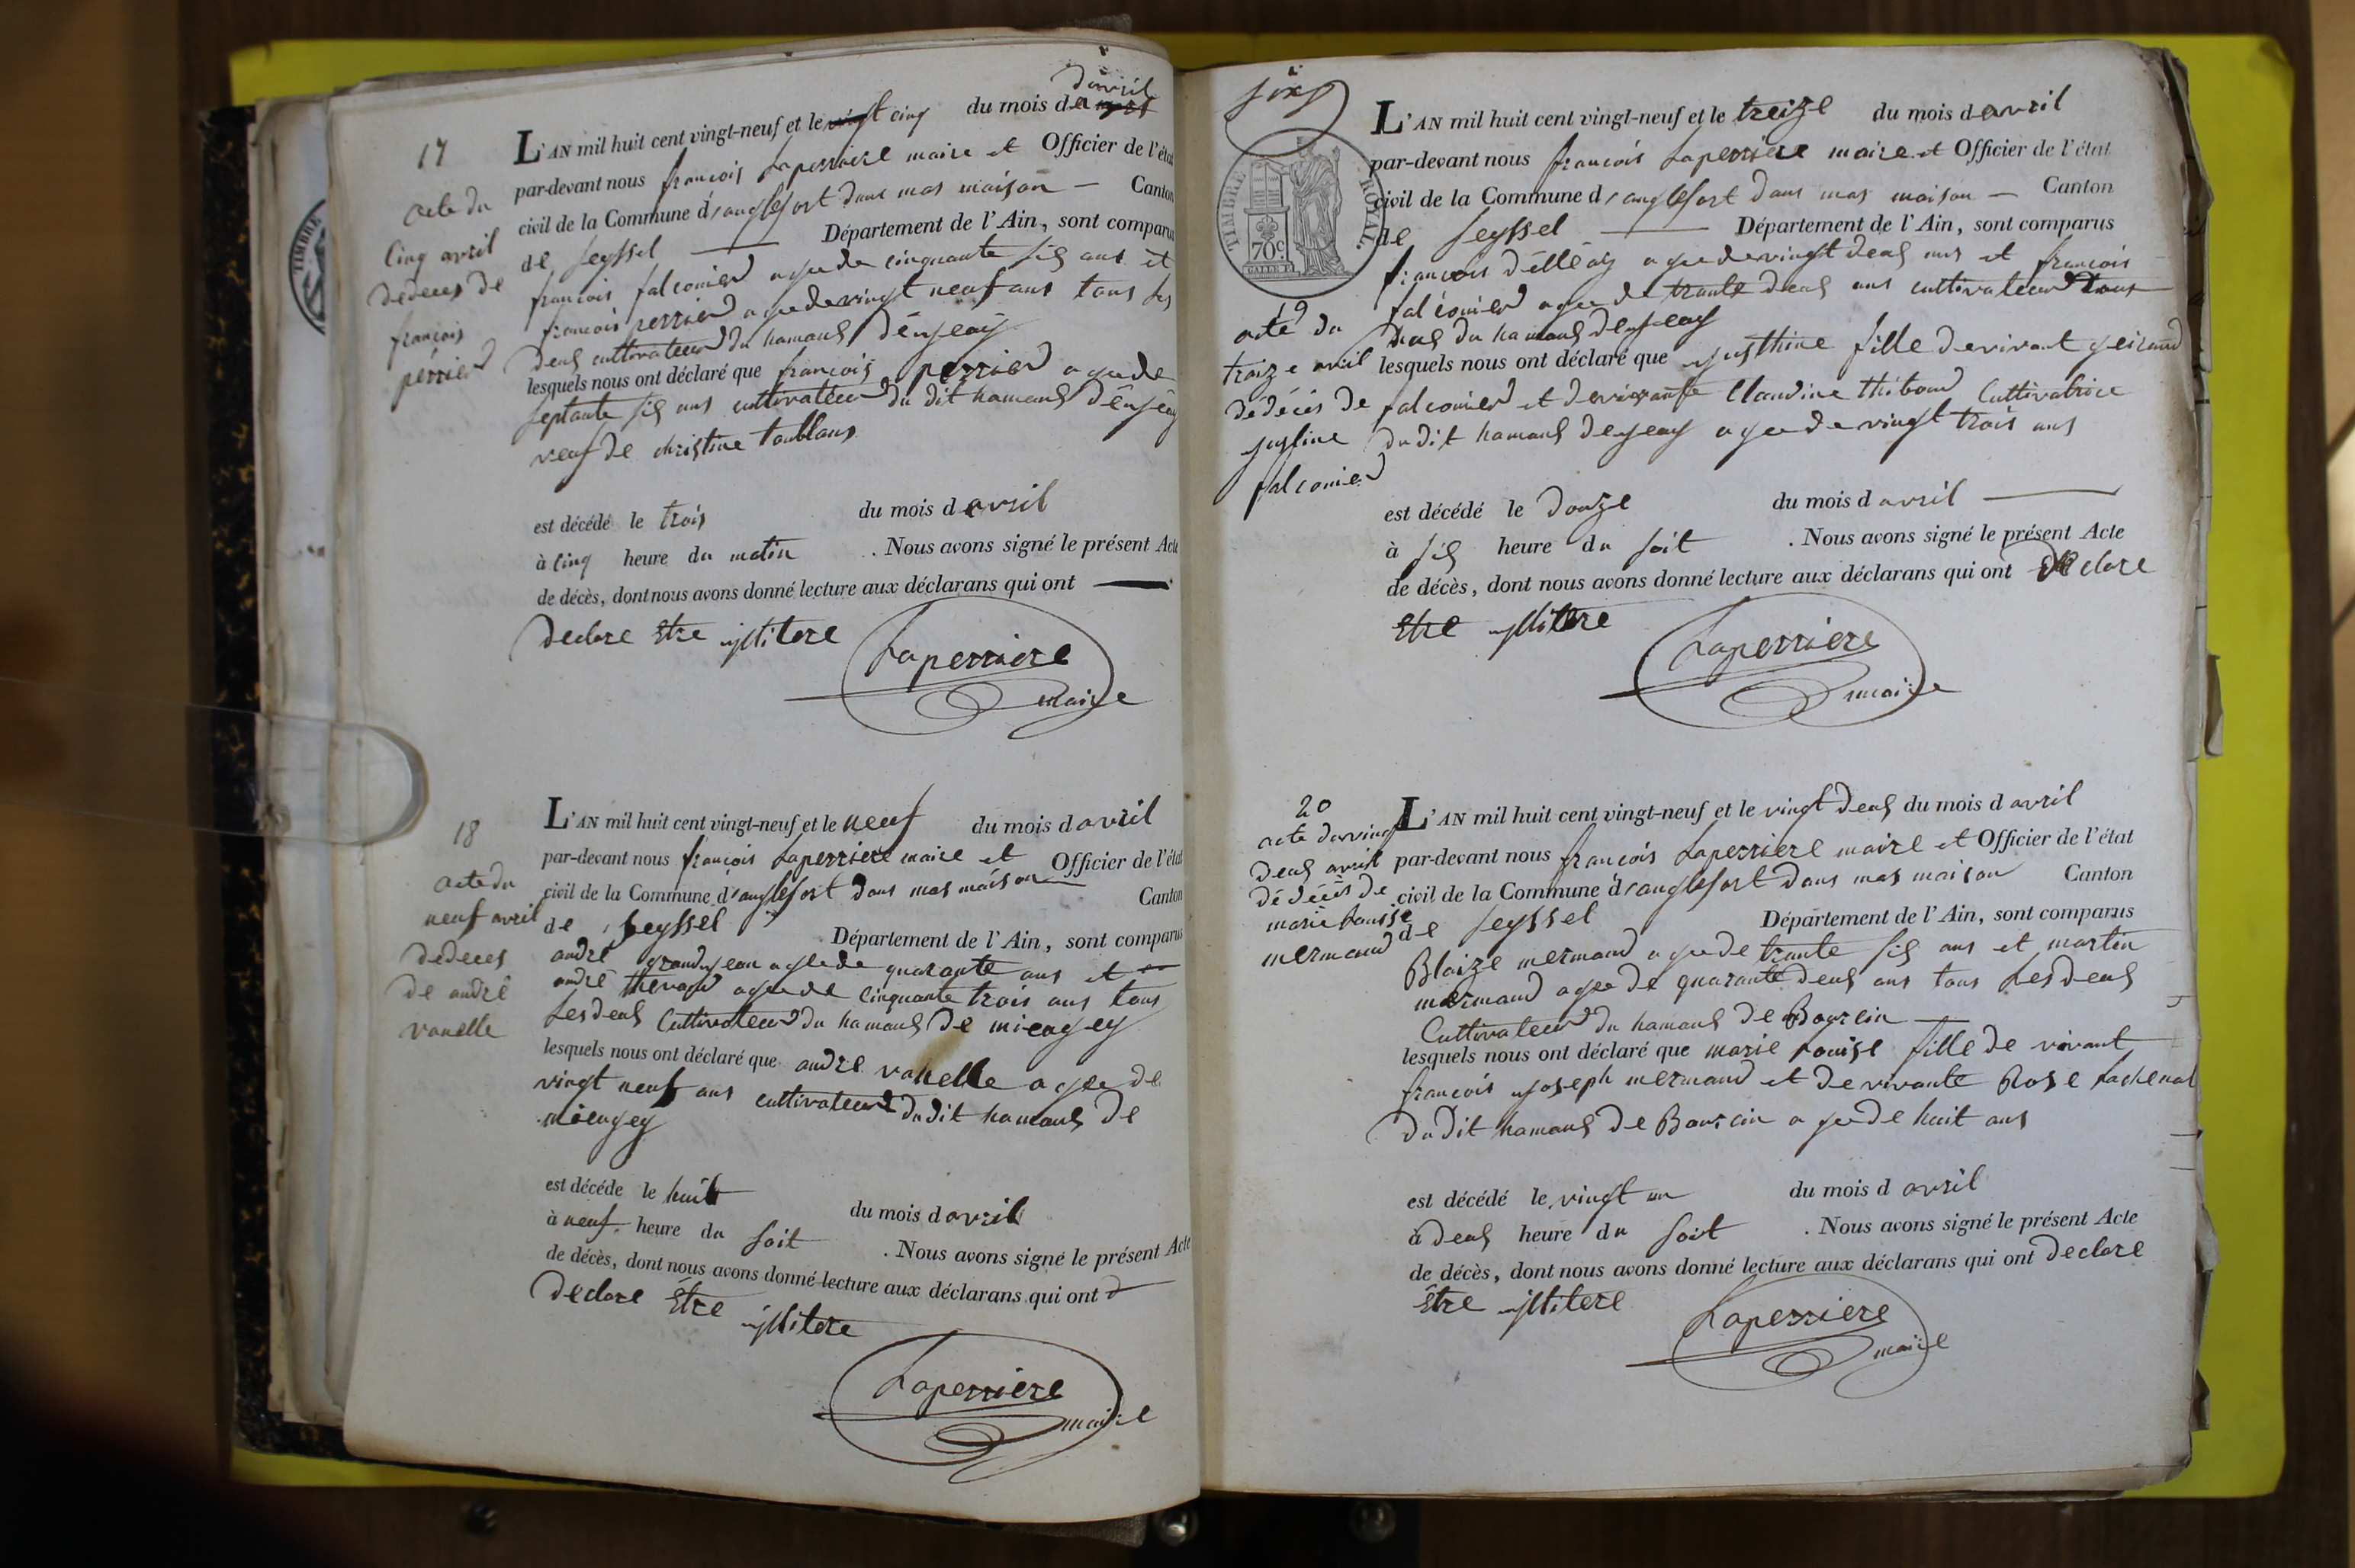 17
acte du
cinq avril
de deces de
francois
perrier
L'AN mil huit cent vingt-neuf et le cinq du mois d avril
par-devant nous francois Laperriere maire et Officier de l'état
civil de la Commune d'anglefort dans mas maison — Canton
de Seyssel — Département de l'Ain, sont comparus
francois falconier agee de cinquante six ans et
francois perrier agee de vingt neuf ans tous les
deux cultivateur du hamaux
lesquels nous ont déclaré que francois perrier agee de
septante six ans cultivateur du dit hamaux
veuf de christine
est décédé le trois du mois d avril
à cinq heure du matin . Nous avons signé le présent Acte
de décès, dont nous avons donné lecture aux déclarans qui ont —
declare Etre illitere
Laperriere
maire
18
acte du
neuf avril
de deces
de andre
vanelle
L'AN mil huit cent vingt-neuf et le neuf du mois d avril
par-devant nous francois Laperriere maire et Officier de l'état
civil de la Commune d'anglefort dans mas maison — Canton
de Seyssel Département de l'Ain, sont comparus
andre grandjean agee de quarante ans et
andre agee de cinquante trois ans tous
Les deux Cultivateur du hamaux de
lesquels nous ont déclaré que andre vanelle agee de
vingt neuf ans cultivateur du dit hamaux de
est décédé le huit du mois d avril
à neuf heure du soit . Nous avons signé le présent Acte
de décès, dont nous avons donné lecture aux déclarans qui ont
declare Etre illitere
Laperriere
maire
TIMBRE ROYAL.
70c
19
acte du
traize avril
de décès de
justine
falconier
L'AN mil huit cent vingt-neuf et le treize du mois d avril
par-devant nous francois Laperriere maire et Officier de l'état
civil de la Commune d'anglefort dans mas maison — Canton
de Seyssel — Département de l'Ain, sont comparus
francois agee de vingt deux ans et francois
falconier agee de trante deux ans cultivateur tous
deux du hamaux
lesquels nous ont déclaré que justhine fille de vivant
falconier et de vivante Claudine thiboud Cultivatrice
du dit hamaux agee de vingt trois ans
est décédé le Douze du mois d avril —
à six heure du soit . Nous avons signé le présent Acte
de décès, dont nous avons donné lecture aux déclarans qui ont declare
Etre illitere
Laperriere
maire
20
acte du vingt
deux avril
de décès de
marie Louise
mermand
L'AN mil huit cent vingt-neuf et le vingt deux du mois d avril
par-devant nous francois Laperriere maire et Officier de l'état
civil de la Commune d'anglefort dans mas maison Canton
de Seyssel Département de l'Ain, sont comparus
Blaize mermand agee de trante six ans et martin
mermand agee de quarante deux ans tous Les deux
Cultivateur du hamaux de —
lesquels nous ont déclaré que marie Louise fille de vivant
francois joseph mermand et de vivante Rose Lachenal
du dit hamaux de agee de huit ans
est décédé le vingt un du mois d avril
à deux heure du soit . Nous avons signé le présent Acte
de décès, dont nous avons donné lecture aux déclarans qui ont declare
Etre illitere
Laperriere
maire